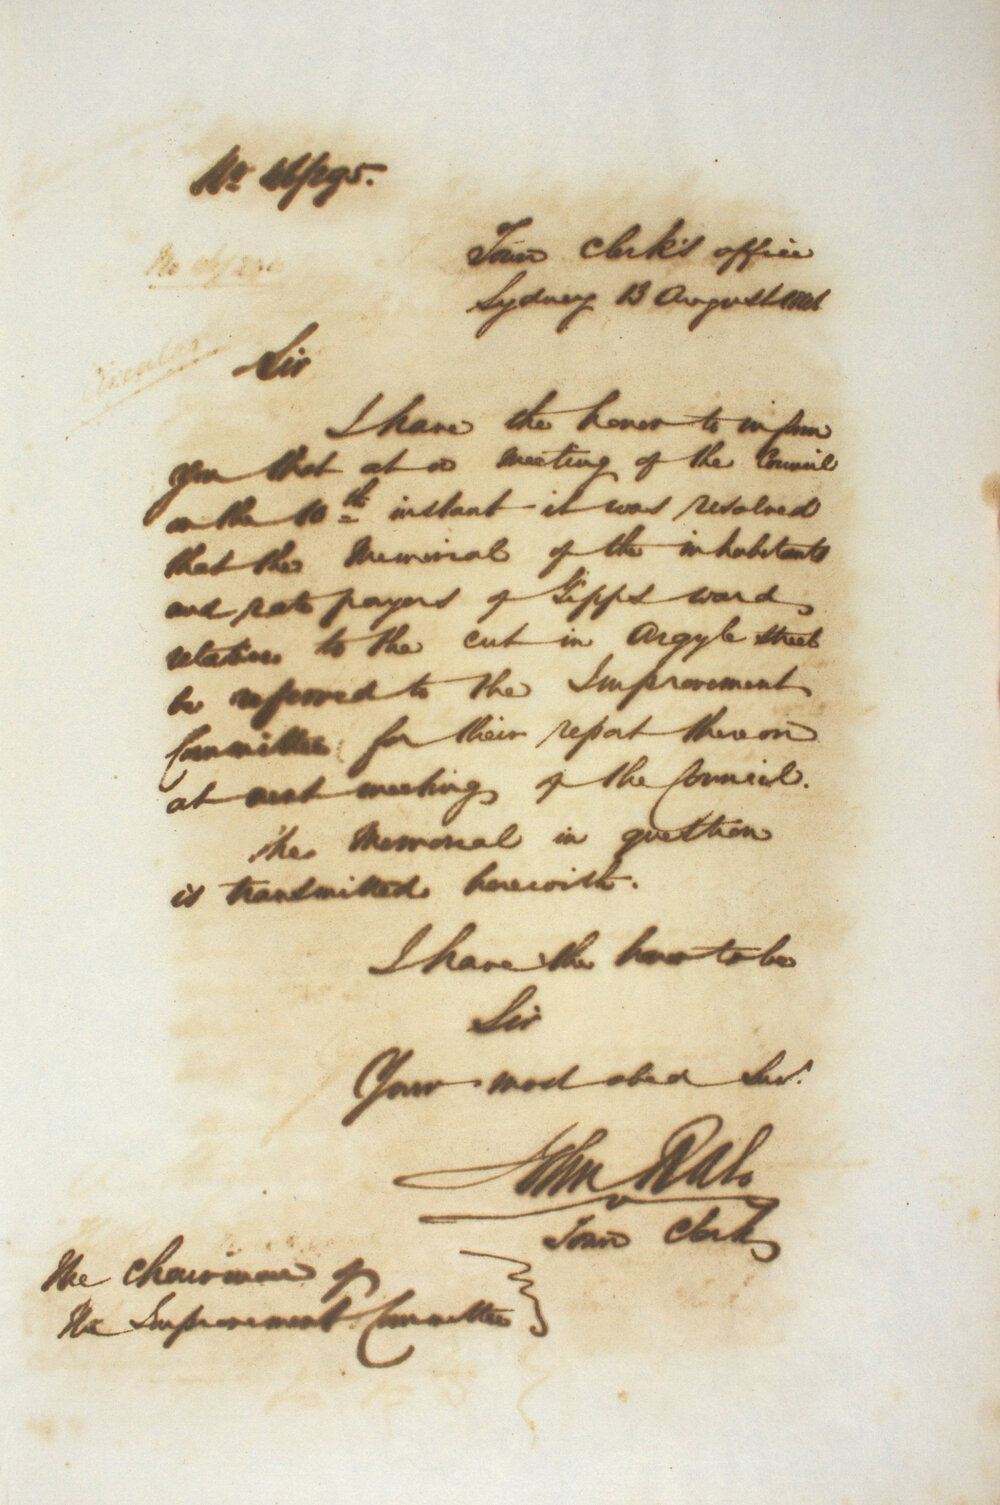 No 46/295.
Town Clerk's office
Sydney 13 August 1846
Sir
I have the honor to inform
you that at a meeting of the Council
on the 10th instant it was resolved
that the Memorial of the inhabitants
and rate payers of Gipps ward
relative to the cut in Argyle Street
be referred to the Improvement
Committee for their report thereon
at next meeting of the Council.
The Memorial in question
is transmitted herewith.
I have the honor to be
Sir
Your most obed Serv.
John Rae
Town Clerk
The Chairman of
The Improvement Committee